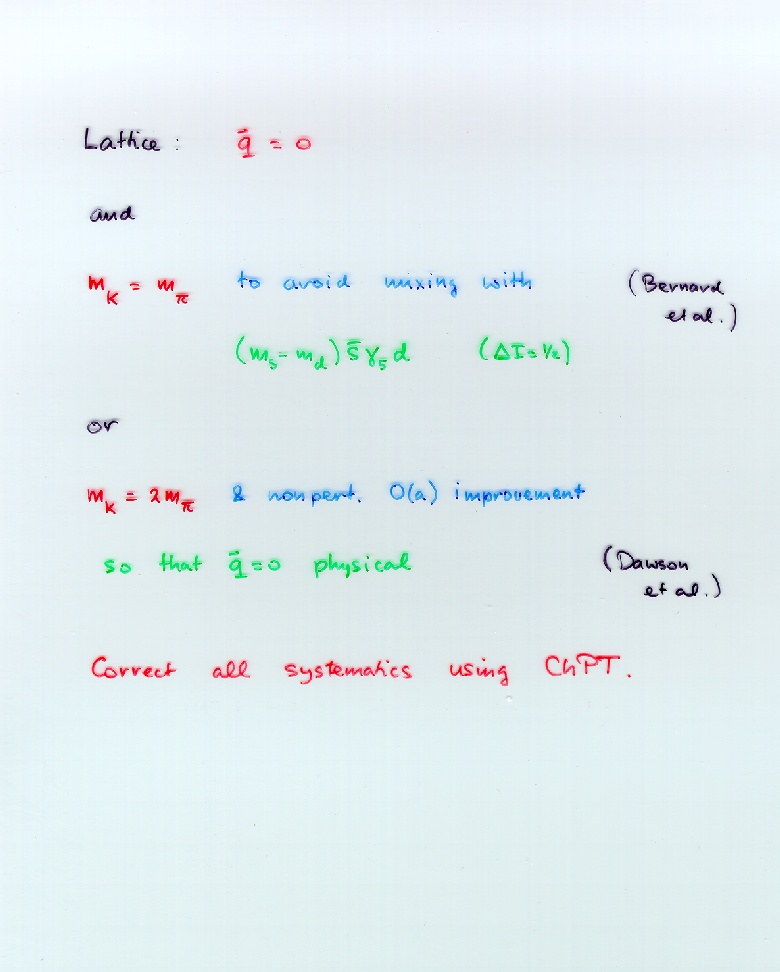 Lattice : q⃗ = 0
and
m_K = m_π to avoid mixing with (Bernard
et al.)
(m_s - m_d) s̄ γ_5 d (ΔI = 1/2)
or
m_K = 2m_π & nonpert. O(a) improvement
so that q⃗ = 0 physical (Dawson
et al.)
Correct all systematics using ChPT.